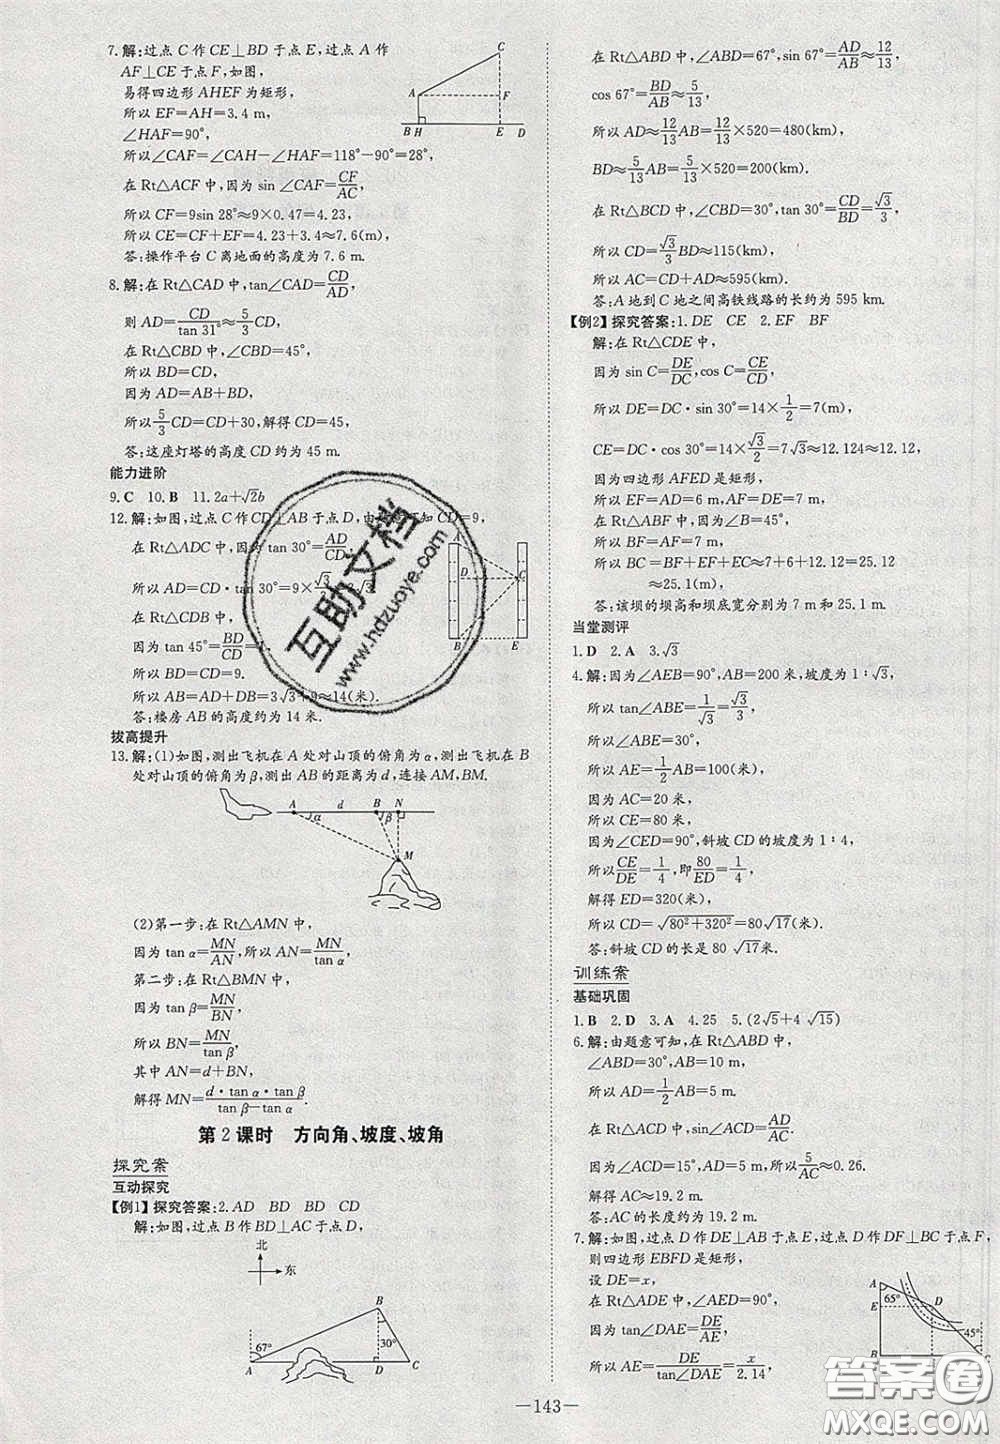 7.解:过点C作CE⊥BD于点E,过点A作
AF⊥CE于点F,如图,
易得四边形AHEF为矩形,
所以EF=AH=3.4 m,
∠HAF=90°,
所以∠CAF=∠CAH-∠HAF=118°-90°=28°,
在Rt△ACF中,因为sin∠CAF=CF/AC,
所以CF=9sin 28°≈9×0.47=4.23,
所以CE=CF+EF=4.23+3.4≈7.6(m).
答:操作平台C离地面的高度为7.6 m.
C
A
F
B H E D
8.解:在Rt△CAD中,tan∠CAD=CD/AD,
则AD=CD/tan 31°≈5/3CD,
在Rt△CBD中,∠CBD=45°,
所以BD=CD,
因为AD=AB+BD,
所以5/3CD=CD+30,解得CD=45,
答:这座灯塔的高度CD约为45 m.
能力进阶
9.C 10.B 11.2a+√2b
12.解:如图,过点C作CD⊥AB于点D,由 知CD=9,
在Rt△ADC中,因为tan 30°=AD/CD,
所以AD=CD·tan 30°=9×√3/3=3√3.
在Rt△CDB中,
因为tan 45°=BD/CD=1,
所以BD=CD=9.
所以AB=AD+BD=3√3+9≈14(米).
答:楼房AB的高度约为14米.
A
D C
B E
拔高提升
13.解:(1)如图,测出飞机在A处对山顶的俯角为α,测出飞机在B
处对山顶的俯角为β,测出AB的距离为d,连接AM,BM.
A d B N
α β
M
(2)第一步:在Rt△AMN中,
因为tan α=MN/AN,所以AN=MN/tan α,
第二步:在Rt△BMN中,
因为tan β=MN/BN,
所以BN=MN/tan β,
其中AN=d+BN,
解得MN=d·tan α·tan β/tan β-tan α.
第2课时 方向角、坡度、坡角
探究案
互动探究
【例1】探究答案:2.AD BD BD CD
解:如图,过点B作BD⊥AC于点D,
北
东
B
67° 30°
A D C
在Rt△ABD中,∠ABD=67°,sin 67°=AD/AB≈12/13,
cos 67°=BD/AB≈5/13,
所以AD≈12/13AB=12/13×520=480(km),
BD≈5/13AB=5/13×520=200(km).
在Rt△BCD中,∠CBD=30°,tan 30°=CD/BD=√3/3,
所以CD=√3/3BD≈115(km).
所以AC=CD+AD≈595(km).
答:A地到C地之间高铁线路的长约为595 km.
【例2】探究答案:1.DE CE 2.EF BF
解:在Rt△CDE中,
因为sin C=DE/DC,cos C=CE/CD,
所以DE=DC·sin 30°=14×1/2=7(m),
CE=DC·cos 30°=14×√3/2=7√3≈12.124≈12.12.
因为四边形AFED是矩形,
所以EF=AD=6 m,AF=DE=7 m,
在Rt△ABF中,因为∠B=45°,
所以BF=AF=7 m,
所以BC=BF+EF+EC≈7+6+12.12=25.12
≈25.1(m).
答:该坝的坝高和坝底宽分别为7 m和25.1 m.
当堂测评
1.D 2.A 3.√3
4.解:因为∠AEB=90°,AB=200米,坡度为1∶√3,
所以tan∠ABE=1/√3=√3/3,
所以∠ABE=30°,
所以AE=1/2AB=100(米),
因为AC=20米,
所以CE=80米,
因为∠CED=90°,斜坡CD的坡度为1∶4,
所以CE/DE=1/4,即80/ED=1/4,
解得ED=320(米),
所以CD=√(80²+320²)=80√17(米).
答:斜坡CD的长是80√17米.
训练案
基础巩固
1.B 2.D 3.A 4.25 5.(2√5+4√15)
6.解:由题意可知,在Rt△ABD中,
∠ABD=30°,AB=10 m,
所以AD=1/2AB=5 m,
在Rt△ACD中,sin∠ACD=AD/AC,
因为∠ACD=15°,AD=5 m,所以5/AC≈0.26.
解得AC≈19.2 m.
答:AC的长度约为19.2 m.
7.解:如图,过点D作DE⊥AB于点E,过点D作DF⊥BC于点F,
则四边形EBFD是矩形,
设DE=x,
在Rt△ADE中,∠AED=90°,
因为tan∠DAE=DE/AE,
所以AE=DE/tan∠DAE=x/2.14,
A
65°
E D
45°
B
C
—143—
互助文档
www.hdzuoye.com
答案圈
MXQE.COM